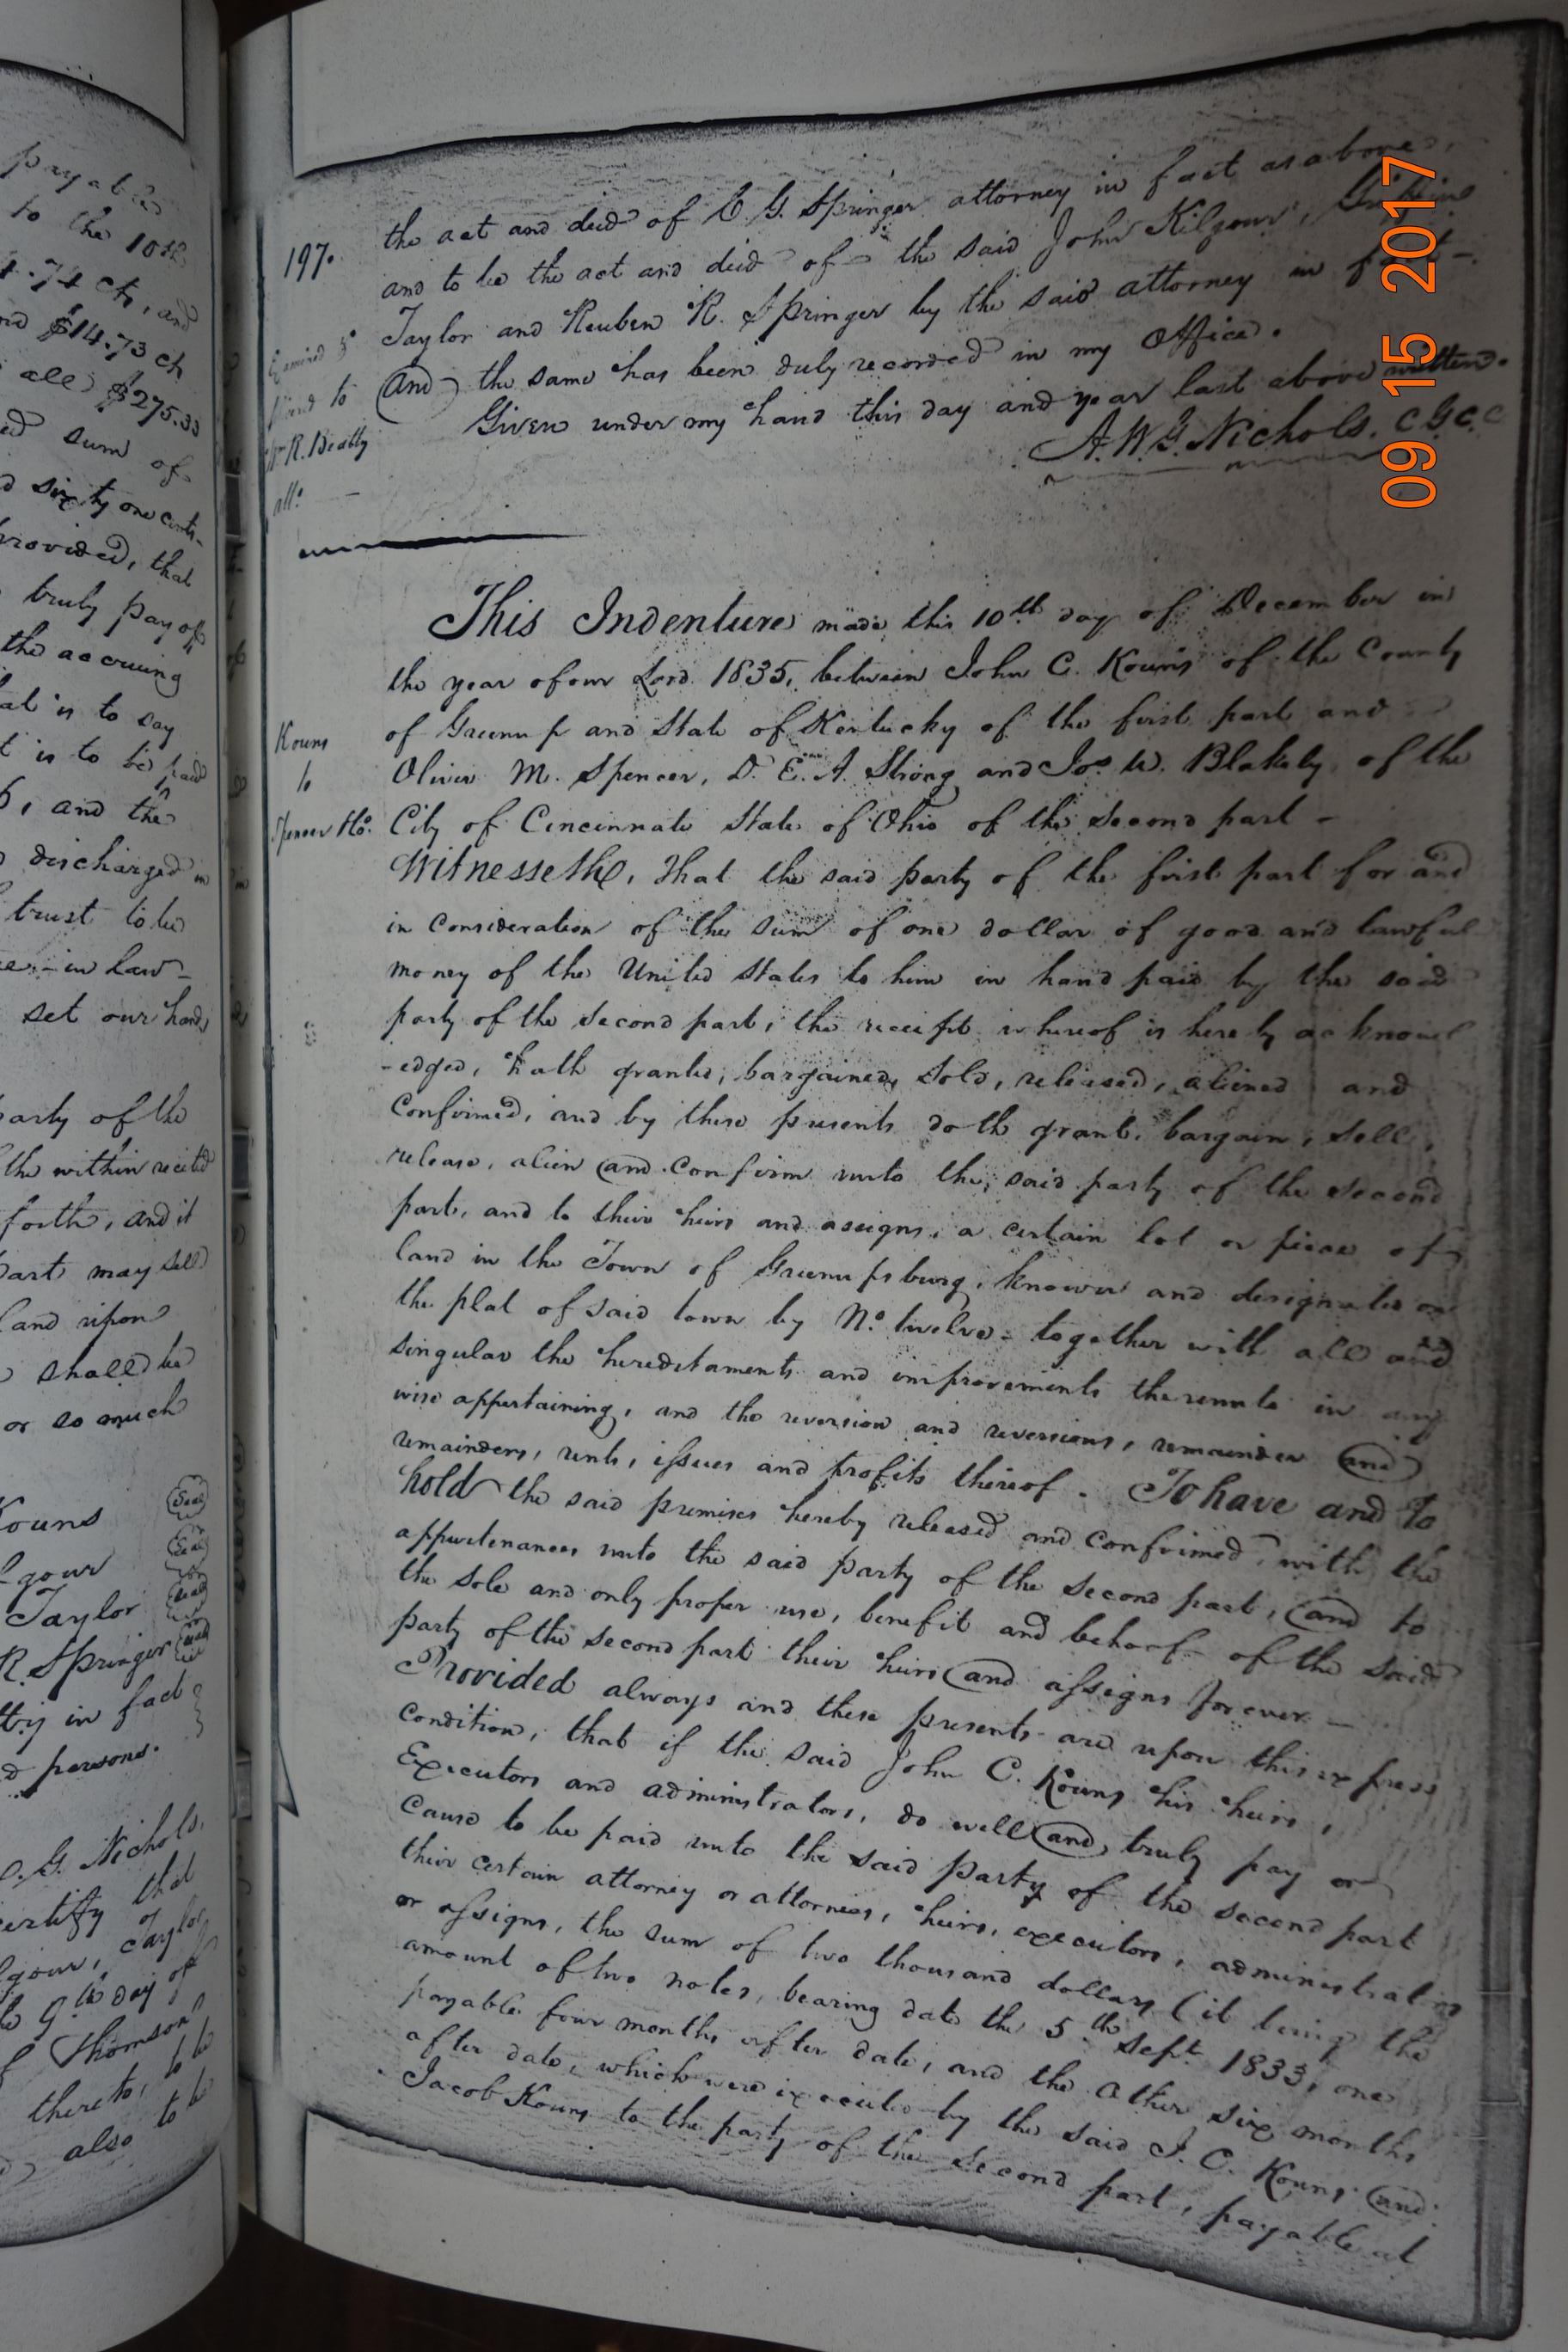 payable
to the 10th
4.74 cts, and
and $14.73 cts
all $275.33
sum of
sixty one cents
provided, that
truly pay off
the accruing
that is to say
it is to be paid
, and the
discharged in
trust to be
in law
set our hands
party of the
the within recited
forth, and it
part may sell
land upon
shall be
or so much
Kouns Seal
lgour Seal
Taylor Seal
R. Springer Seal
atty in fact
persons.
G. Nichols,
certify that
lgour, Taylor
9th day of
Thomson
thereto, to be
also to be
197.
the act and deed of C G. Springer attorney in fact as above,
and to be the act and deed of the said John Kilgour, Griffin
Taylor and Reuben R. Springer by the said attorney in fact -
and the same has been duly recorded in my Office.
Given under my hand this day and year last above written.
A. W. G. Nichols. C G C. C
Examined &
to
Wm R. Beatty
att:
This Indenture made this 10th day of December in
the year of our Lord 1835, between John C. Kouns of the County
of Greenup and State of Kentucky of the first part and
Kouns
to
Spencer &Co.
Oliver M. Spencer, D. E. A. Strong and Jos. W. Blakely, of the
City of Cincinnati State of Ohio of the second part -
Witnesseth, that the said party of the first part for and
in consideration of the sum of one dollar of good and lawful
money of the United States to him in hand paid by the said
party of the second part, the receipt whereof is hereby acknowl
-edged, hath granted, bargained, sold, released, aliened and
confirmed, and by these presents doth grant, bargain, sell,
release, alien and confirm unto the said party of the second
part, and to their heirs and assigns, a certain lot or piece of
land in the Town of Greenupsburg, known and designated on
the plat of said town by No. twelve - together with all and
singular the hereditaments and improvements thereunto in any
wise appertaining, and the reversion and reversions, remainder and
remainders, rents, issues and profits thereof. To have and to
hold the said premises hereby released and confirmed, with the
appurtenances unto the said party of the second part, and to
the sole and only proper use, benefit and behoof of the said
party of the second part their heirs and assigns forever -
Provided always and these presents are upon this express
condition, that if the said John C. Kouns his heirs,
Executors and administrators, do well and truly pay or
cause to be paid unto the said party of the second part
their certain attorney or attornies, heirs, executors, administrators
or assigns, the sum of two thousand dollars (it being the
amount of two notes, bearing date the 5th Sept. 1833, one
payable four months after date, and the other six months
after date, which were executed by the said J. C. Kouns and
Jacob Kouns to the party of the second part, payable at
09 15 2017